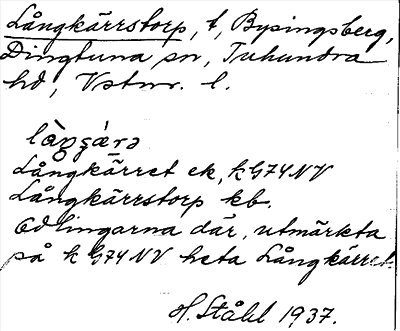 Långkärrstorp, t, Bysingsberg,
Dingtuna sn, Tuhundra
hd, Vstm. l.
Långkärret ek, k G74NV
Långkärrstorp kb.
Odlingarna där, utmärkta
på k G74NV heta Långkärret
H. Ståhl 1937.